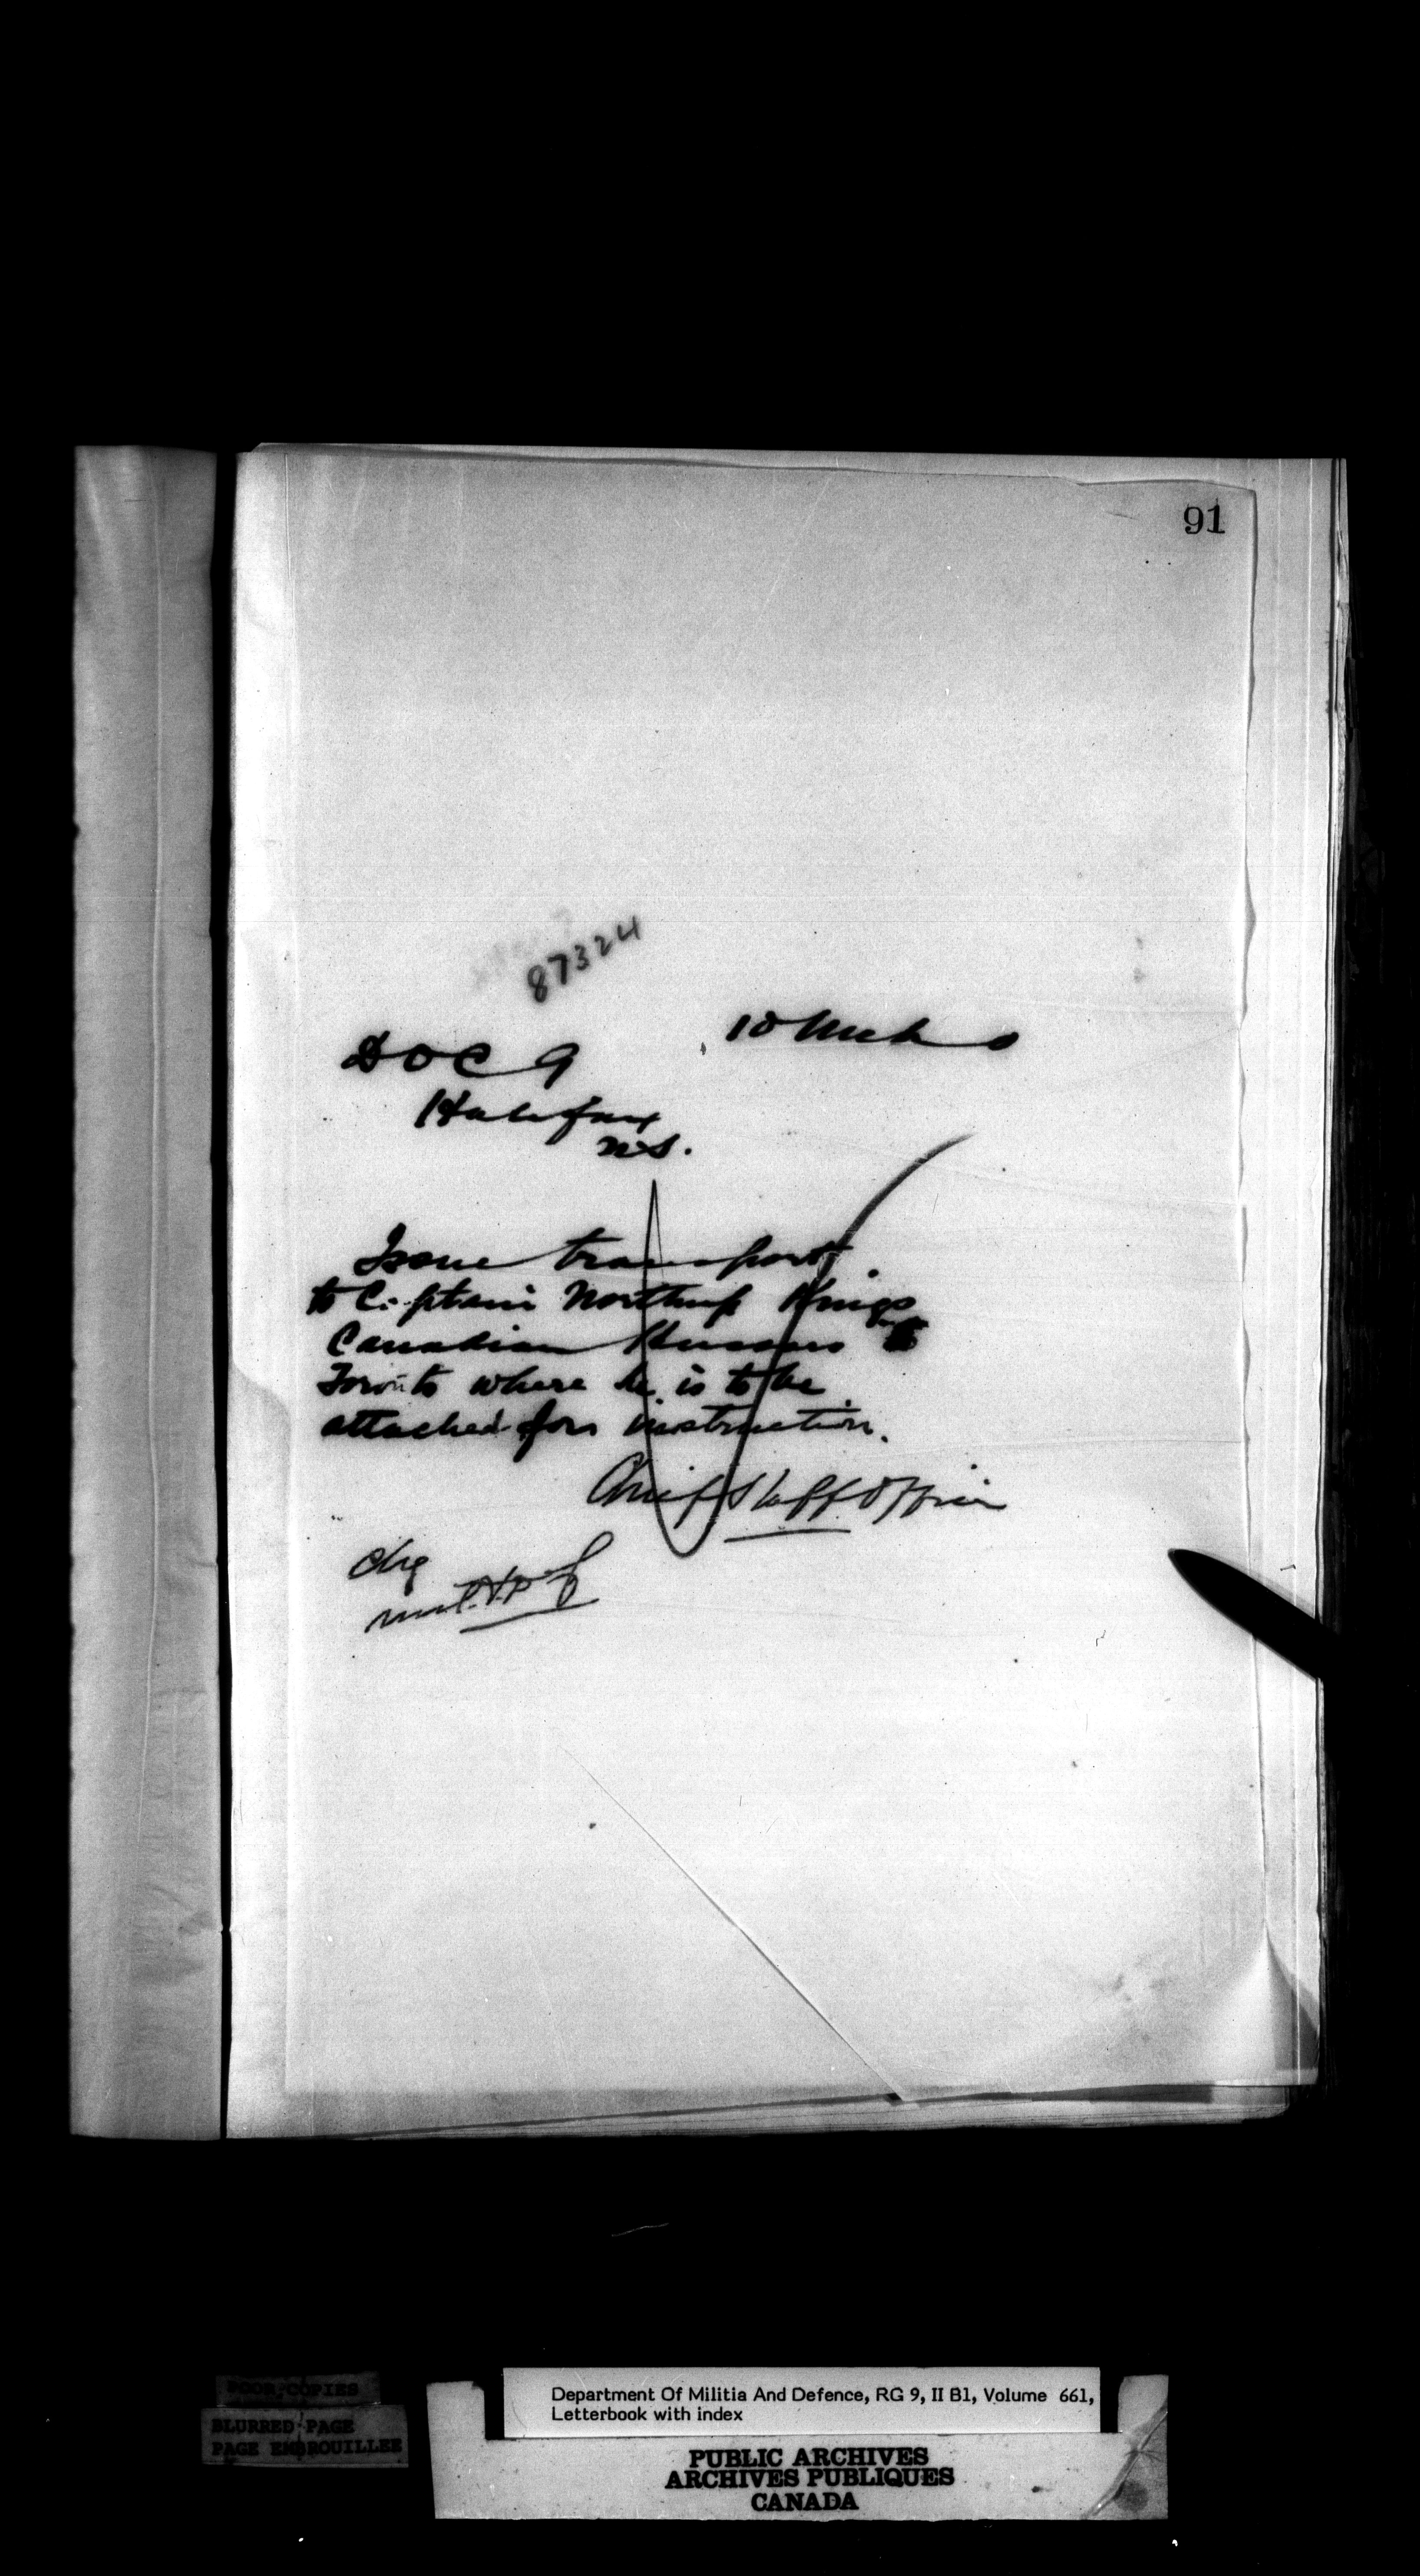 91
87324
10 Mch
DOC 9
Halifax
NS.
Issue transport
to Captain Northup Kings
Canadian Hussars to
Toronto where he is to be
attached for instruction.
Chief Staff Officer
chg
POOR COPIES
BLURRED PAGE
PAGE EMBROUILLEE
Department Of Militia And Defence, RG 9, II B1, Volume 661,
Letterbook with index
PUBLIC ARCHIVES
ARCHIVES PUBLIQUES
CANADA